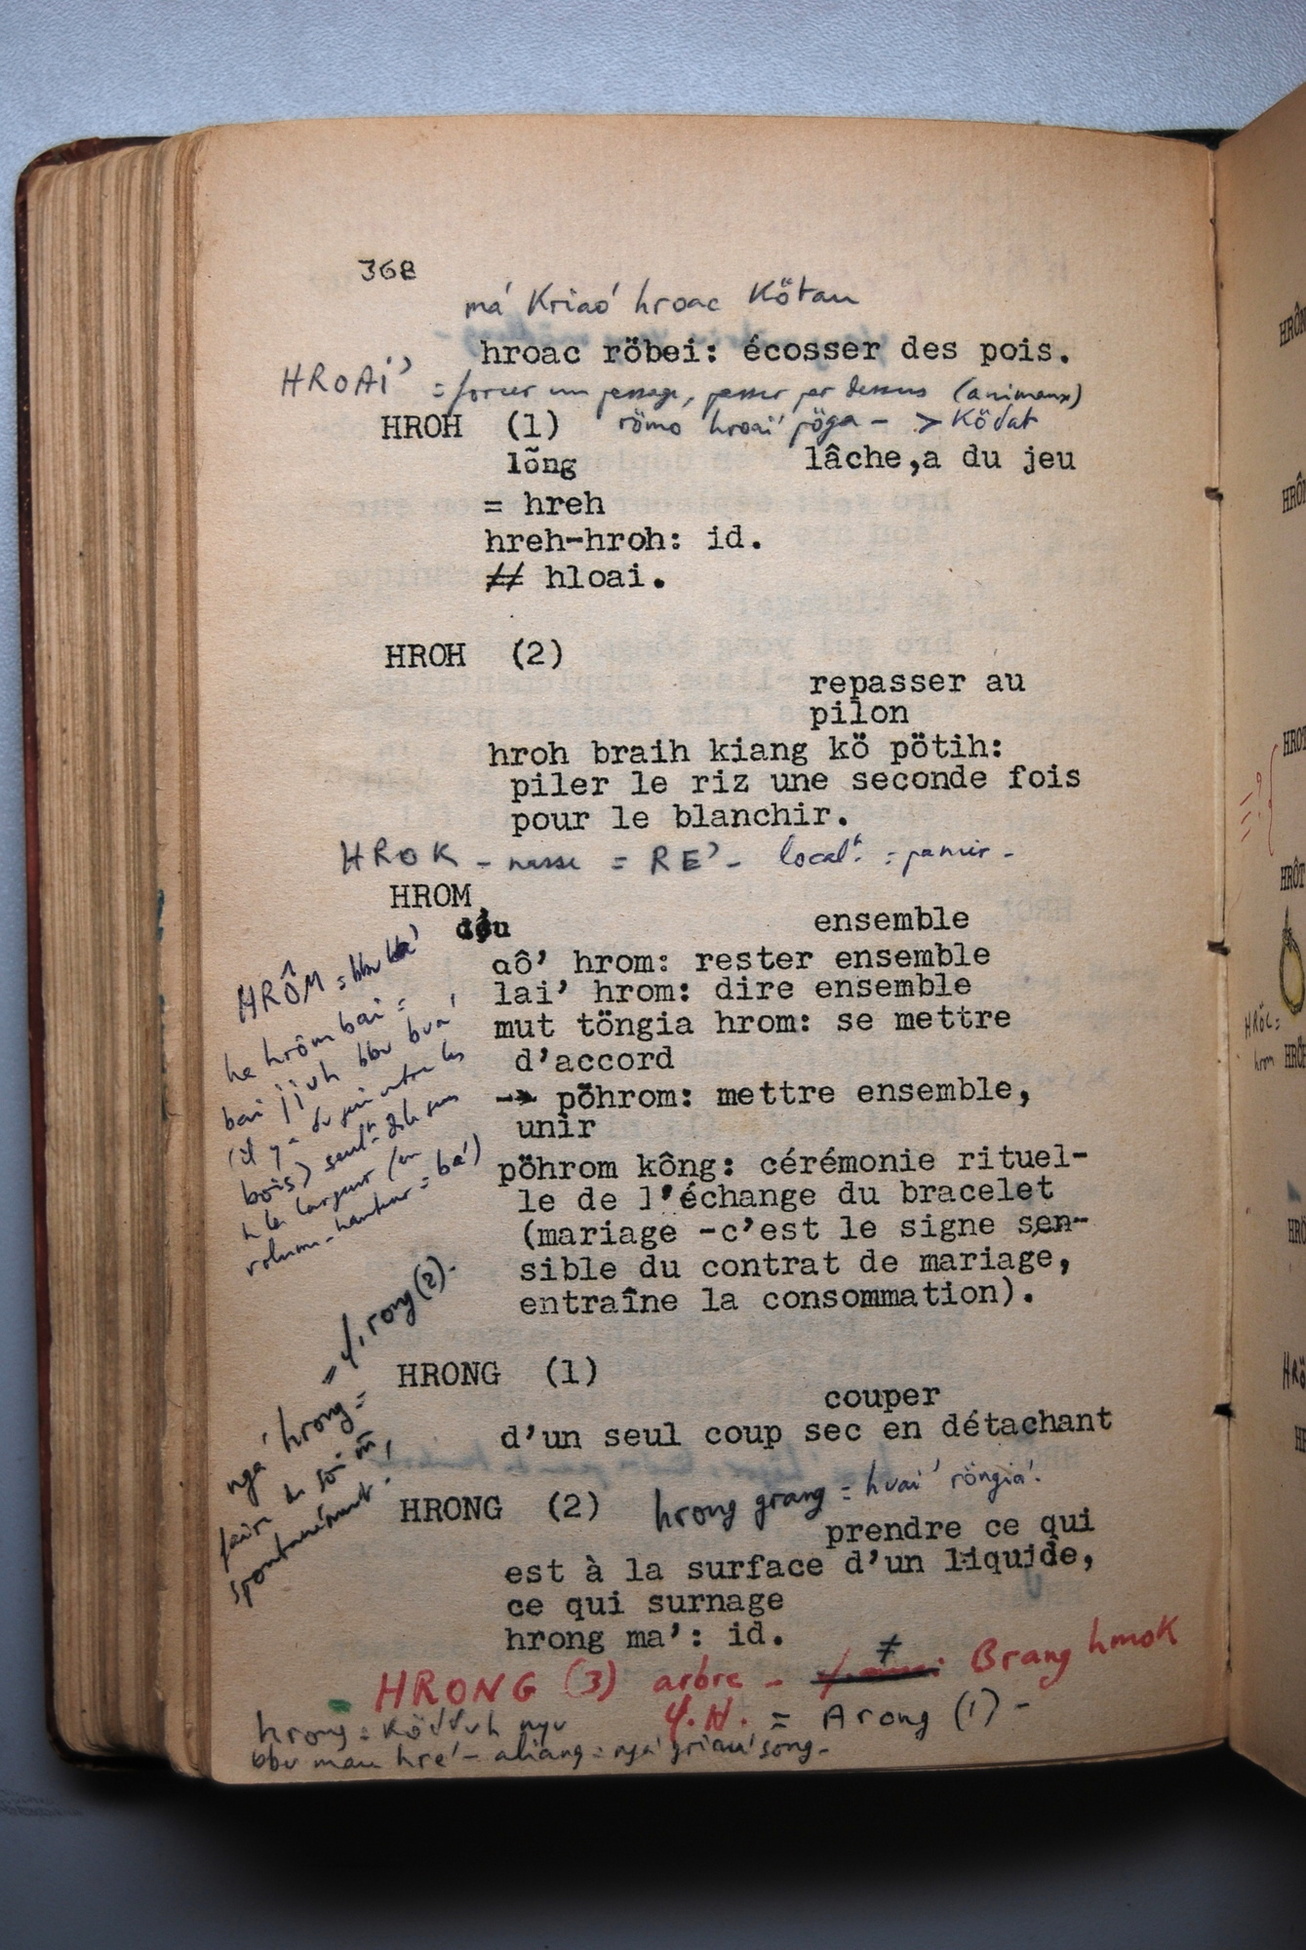 368
má Kriaó hroac Kötau
hroac röbei: écosser des pois.
HROAI' = forcer un passage, passer par dessus (animaux)
HROH (1) römo hroai' pöga - > Ködat
lõng lâche,a du jeu
= hreh
hreh-hroh: id.
≠ hloai.
HROH (2)
repasser au
pilon
hroh braih kiang kö pötih:
piler le riz une seconde fois
pour le blanchir.
HROK - nasse = RE' - localt. = panier -
HROM
ensemble
aô' hrom: rester ensemble
lai' hrom: dire ensemble
mut töngia hrom: se mettre
d'accord
→ pöhrom: mettre ensemble,
unir
pöhrom kông: cérémonie rituel-
le de l'échange du bracelet
(mariage -c'est le signe sen-
sible du contrat de mariage,
entraîne la consommation).
HRÔM = bbu
ha hrôm bai =
bai jjuh bbu bua'
bois) seult
la largeur
volume - hauteur = ba')
HRONG (1)
couper
d'un seul coup sec en détachant
= rong (2).
ngá hrong =
faire de soi m̃,
spontanément!
HRONG (2) hrong grang = huai' röngiá.
prendre ce qui
est à la surface d'un liquide,
ce qui surnage
hrong ma': id.
HRONG (3) arbre - ≠ Brang hmok
= Arong (1) -
hrong = Ködduh nyu
bbu mau hre' - aliang = ngá song -